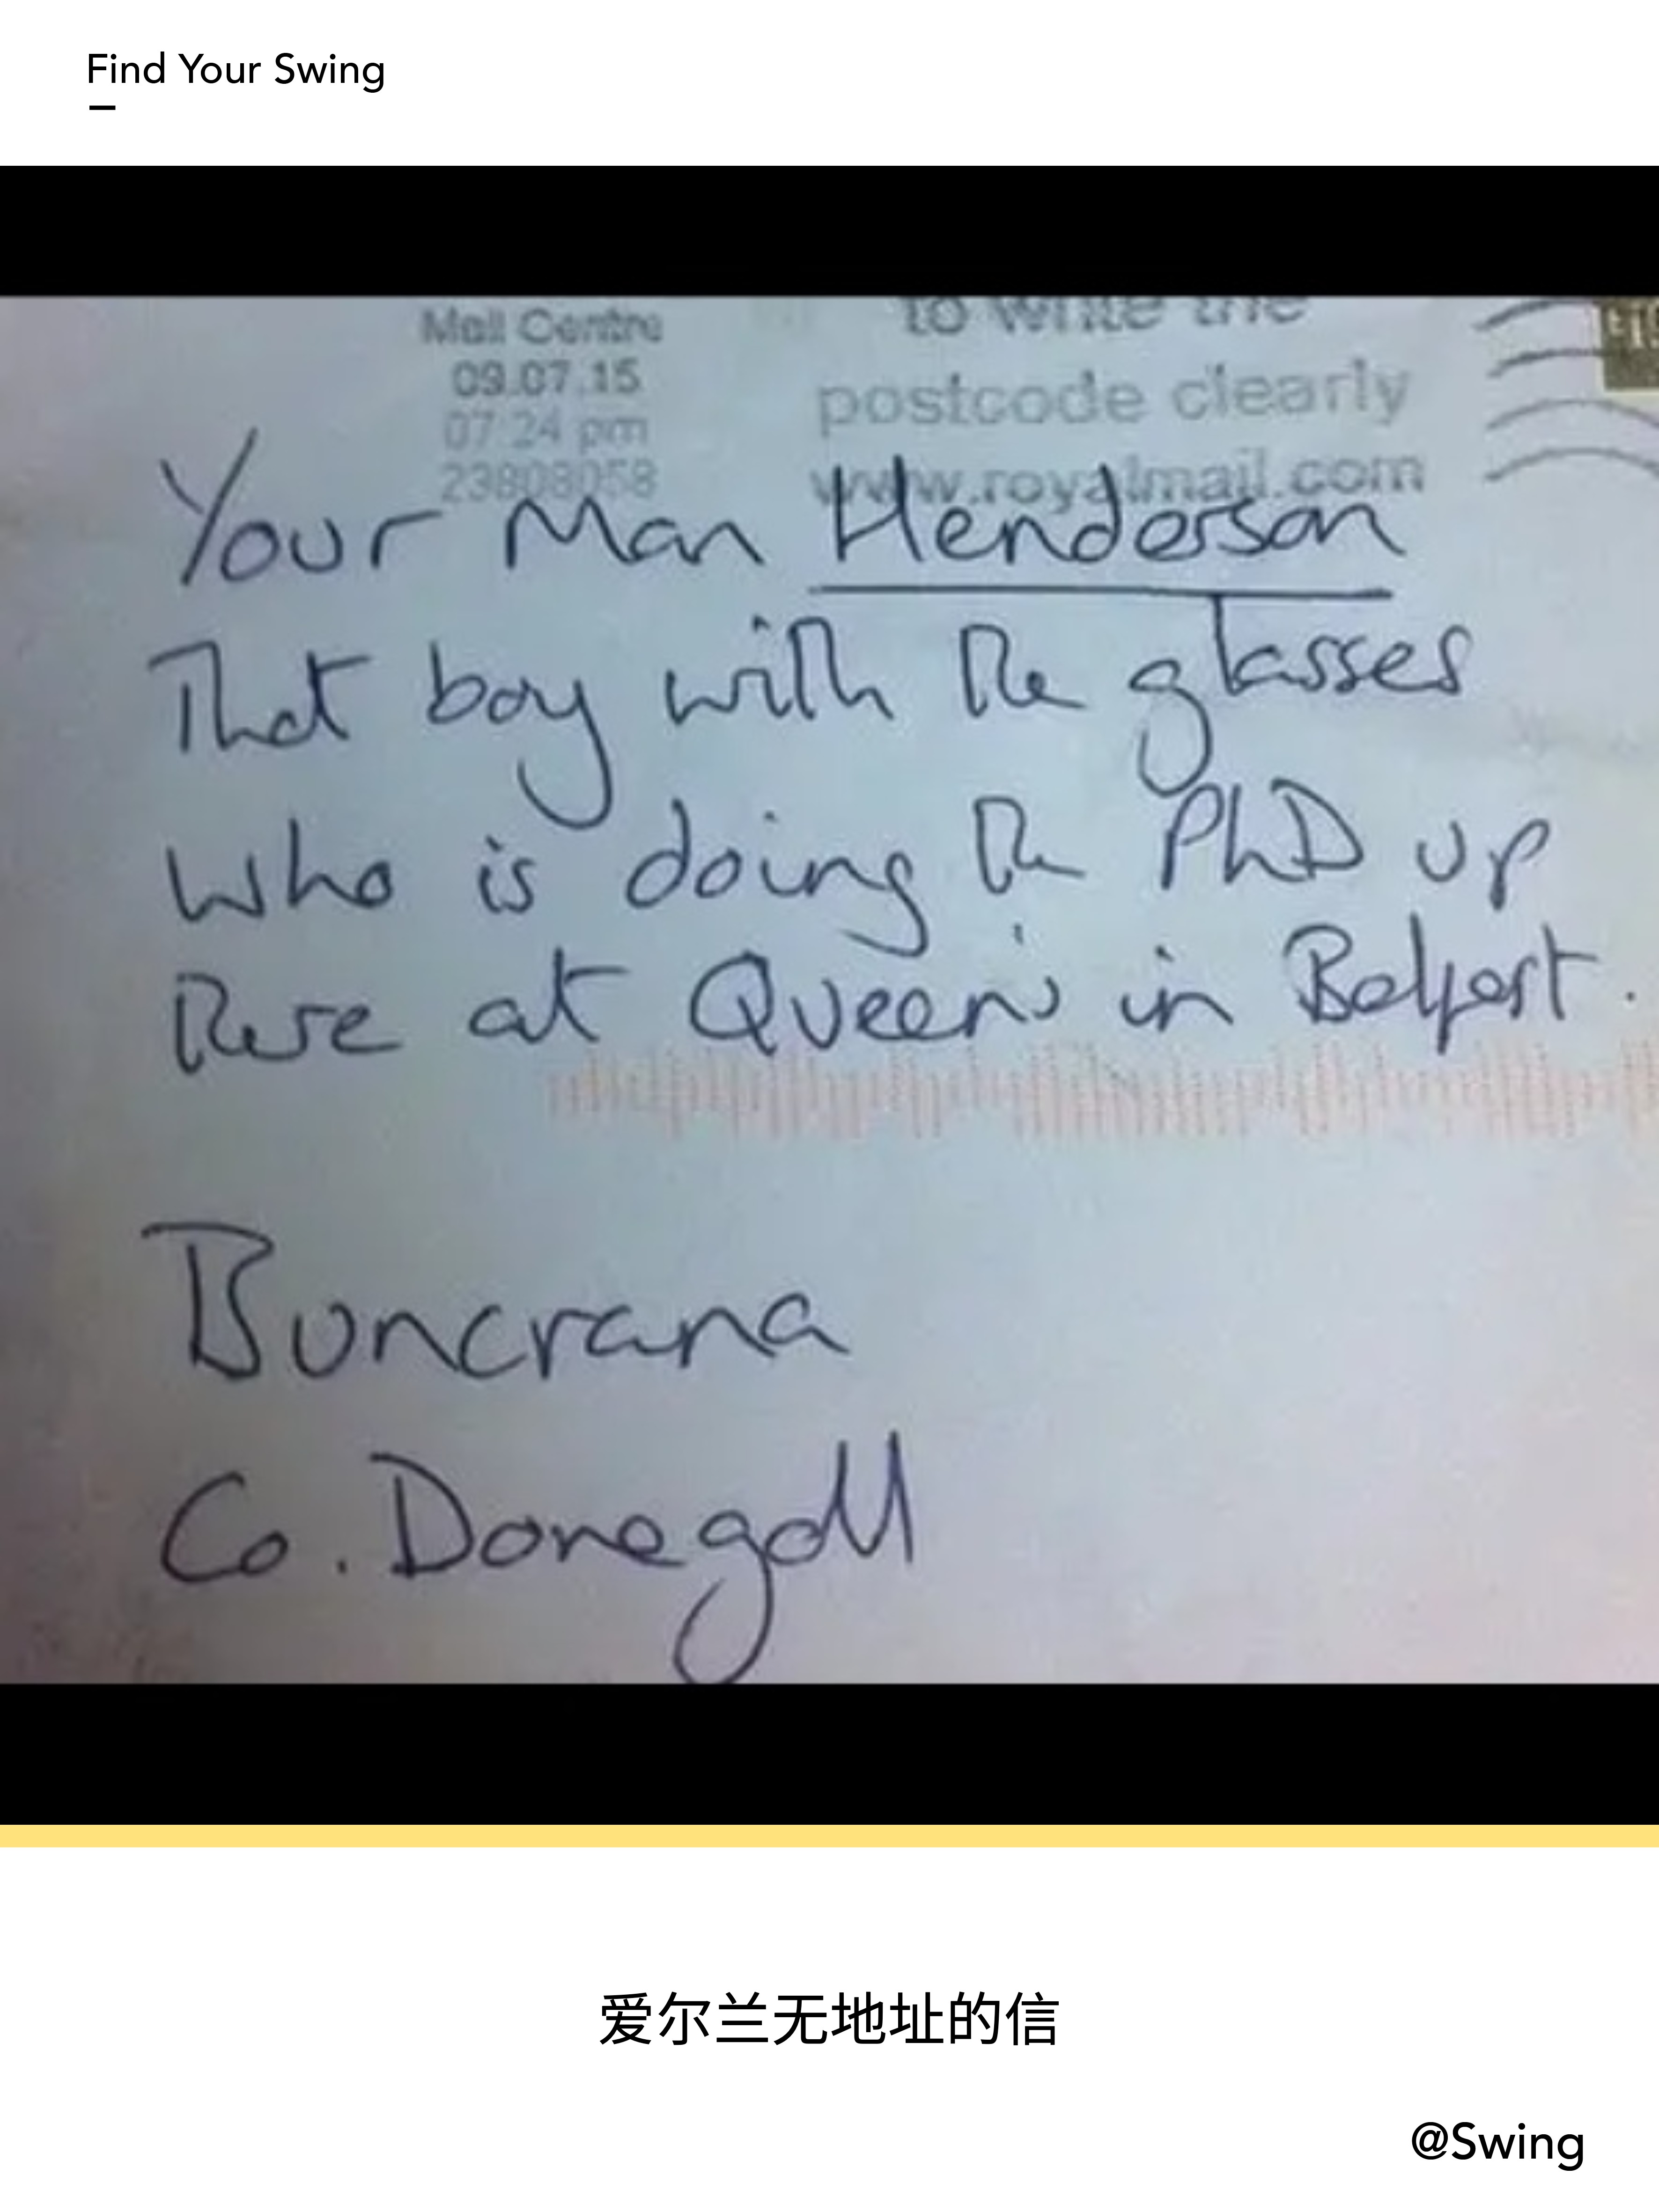 Find Your Swing
Mail Centre
09.07.15
07:24 pm
23808058
to write the
postcode clearly
www.royalmail.com
Your Man Henderson
That boy with the glasses
who is doing the PhD up
there at Queen's in Belfast.
Buncrana
Co. Donegall
爱尔兰无地址的信
@Swing